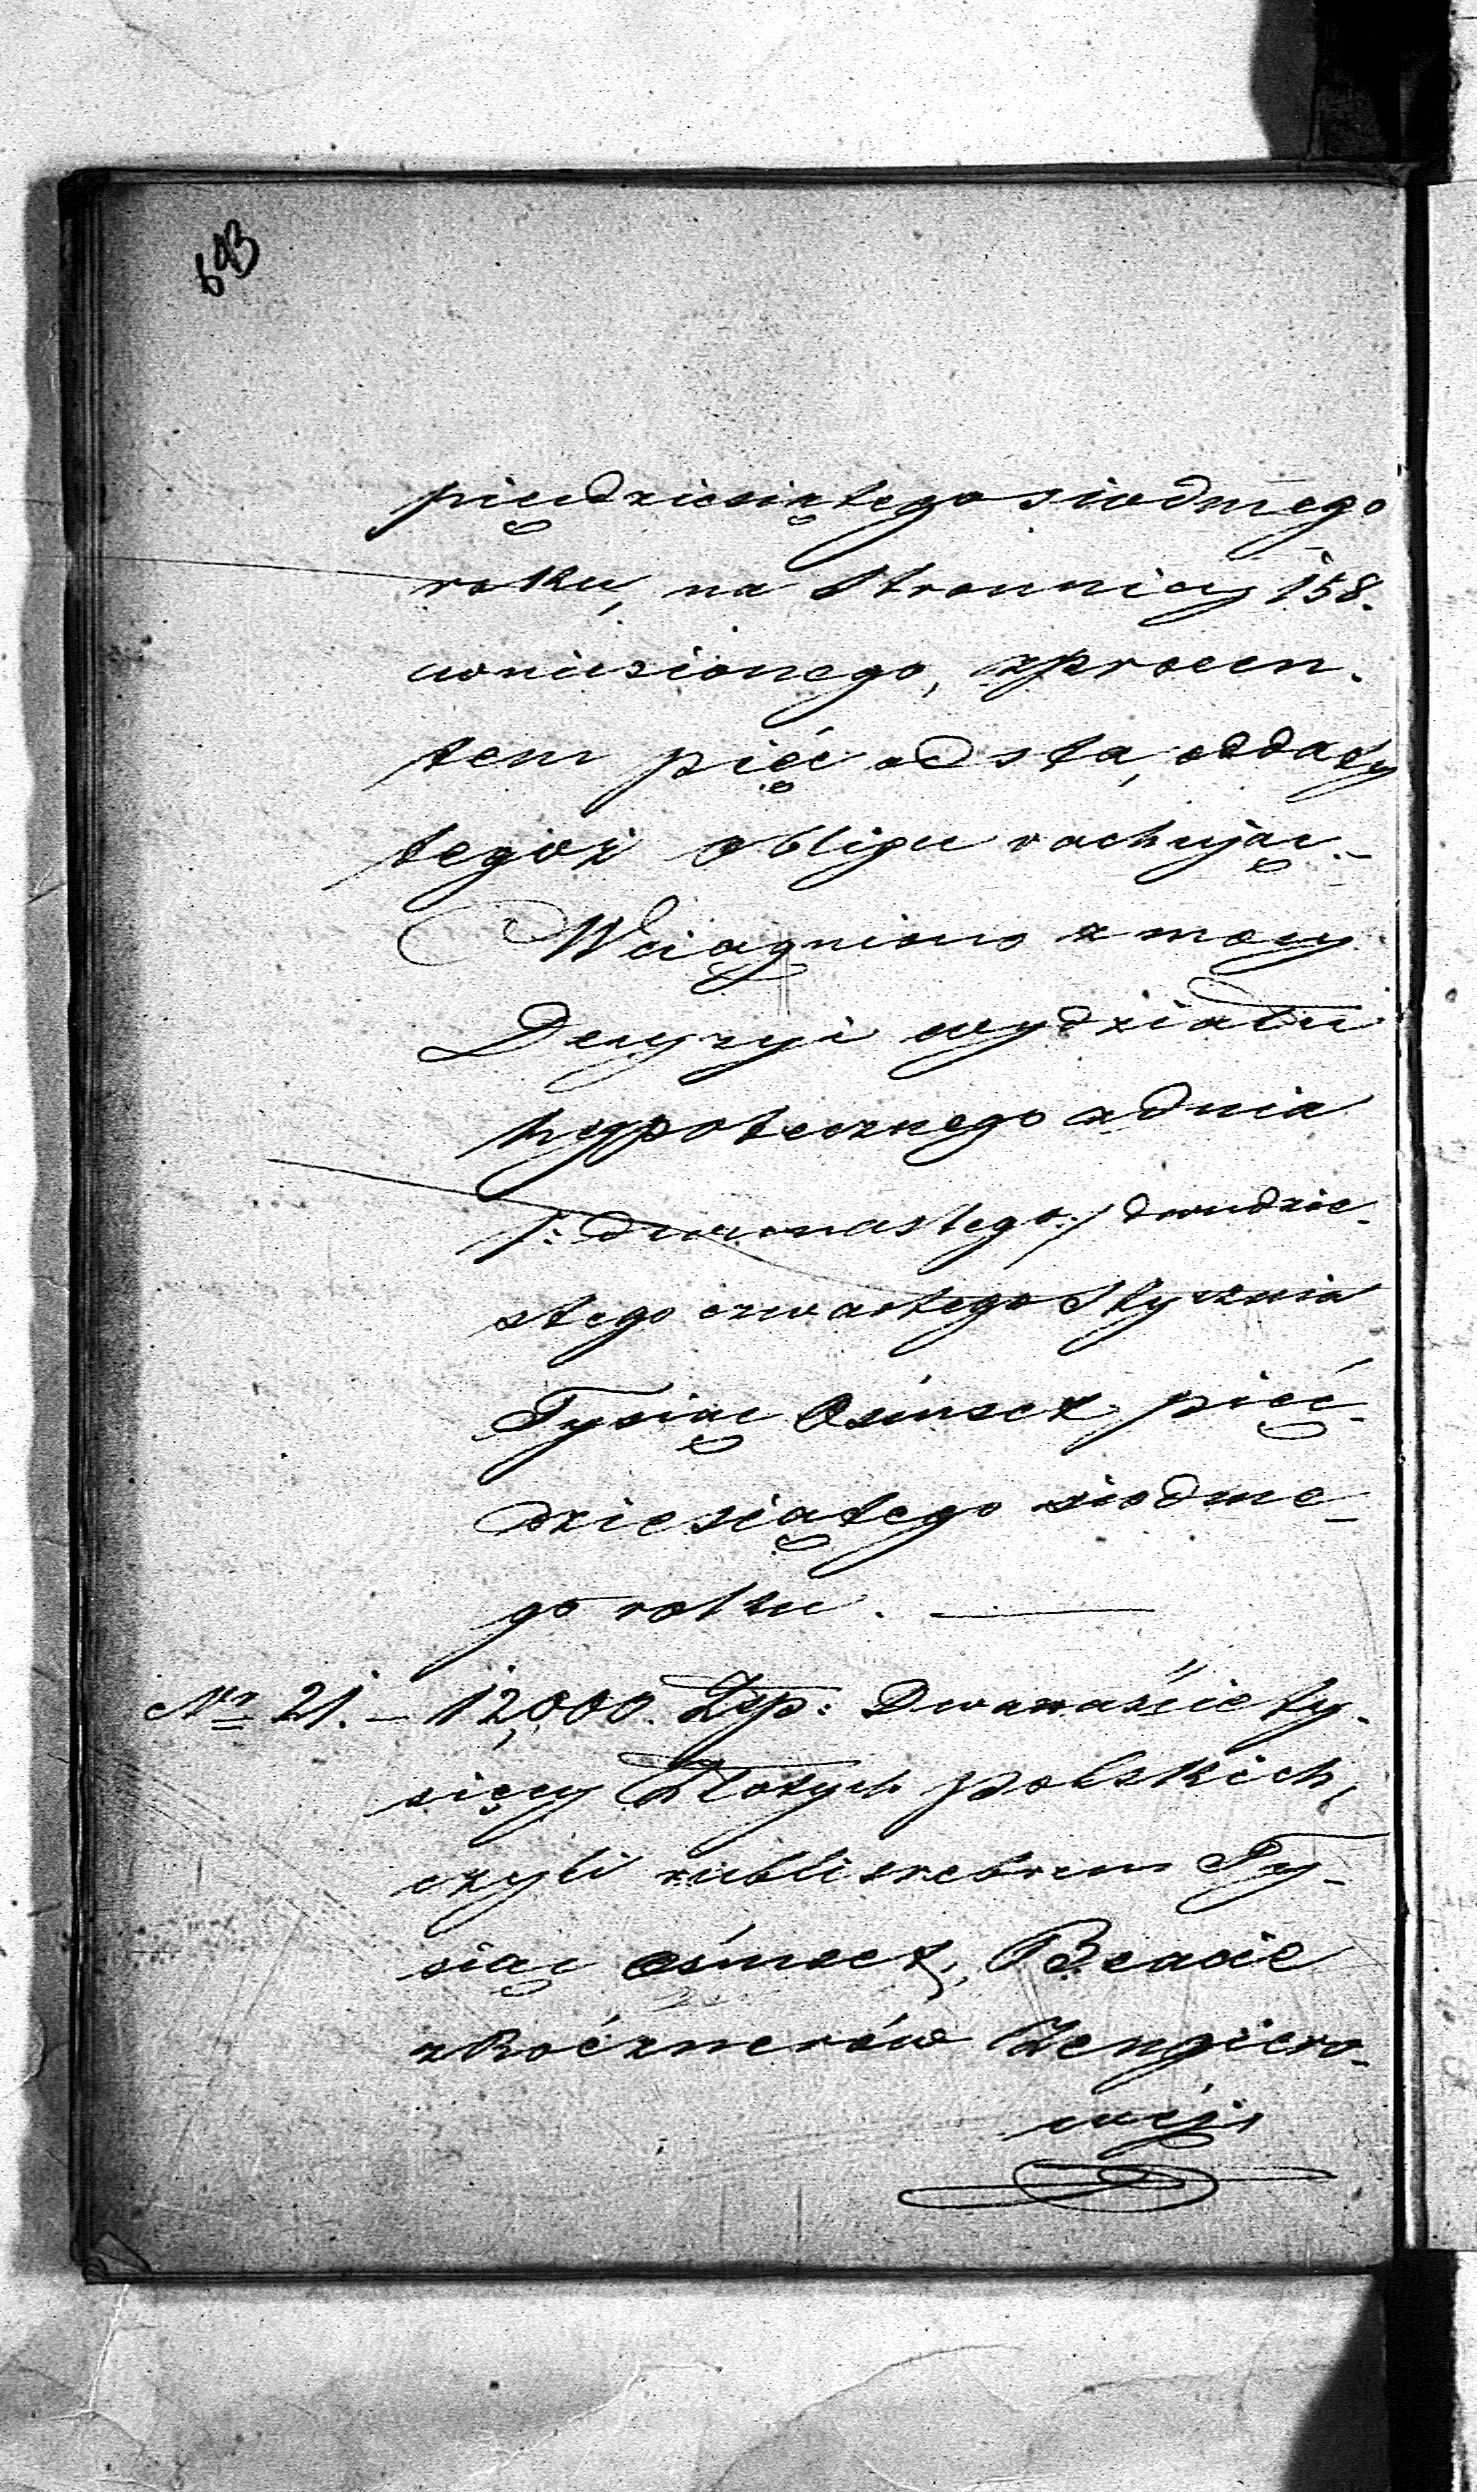 693
pięćdziesiątego siodmego
roku, na Stronnicy 158.
wniesionego, zprocen-
tem pięć od sta, od daty
tegoż obligu rachując.-
Wciągniono z mocy
Decyzyi wydziału
hypotecznego zdnia
/: dwonastego :/ dwudzie-
stego czwartego Stycznia
Tysiąc Ośmset pięć-
dziesiątego siodme-
go roku. —
No 21. - 12,000. Złp: Dwanaście ty-
sięcy Złotych polskich,
czyli rubli srebrem Ty-
siąc ośmset, Beacie
z Zengiero-
wéj,